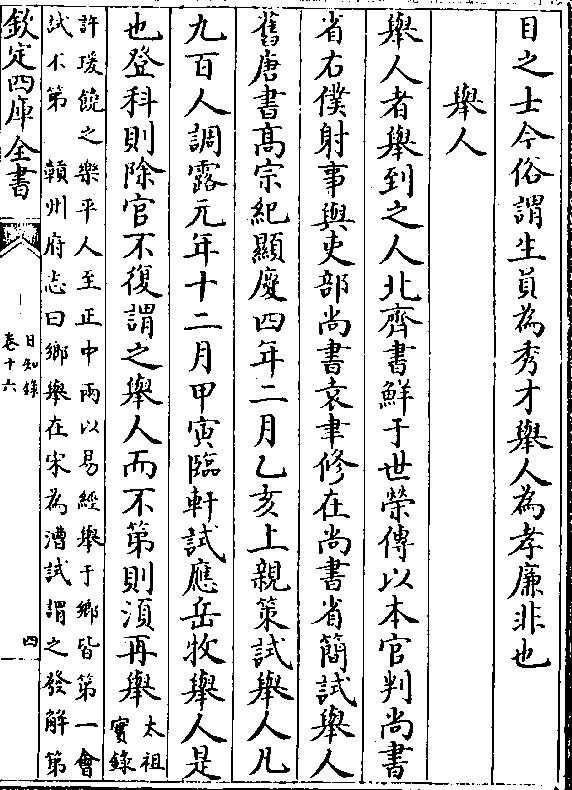 目之士今俗謂生員為秀才舉人為孝廉非也
舉人
舉人者舉到之人北齊書鮮于世榮傳以本官判尚書
省右僕射事與吏部尚書袁聿修在尚書省簡試舉人
舊唐書高宗紀顯慶四年二月乙亥上親策試舉人凡
九百人調露元年十二月甲寅臨軒試應岳牧舉人是
也登科則除官不復謂之舉人而不第則須再舉
太祖
實錄
許瑗饒之樂平人至正中兩以易經舉于鄉皆第一會
試不第 贛州府志曰鄉舉在宋為漕試謂之發解第
欽定四庫全書
日知錄
卷十六
四